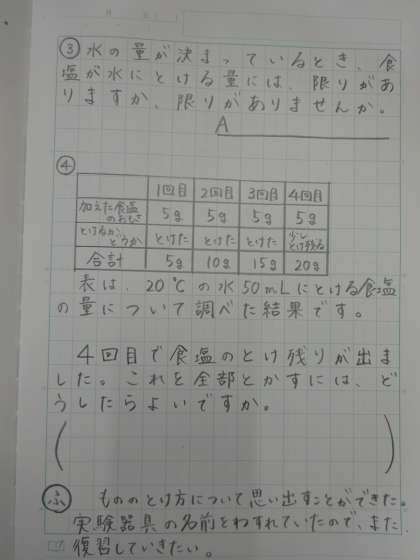 ③水の量が決まっているとき、食
塩が水にとける量には、限りがあ
りますか、限りがありませんか。
A
④
1回目 2回目 3回目 4回目
加えた食塩のおもさ 5g 5g 5g 5g
とけるか、どうか とけた とけた とけた 少しとけ残る
合計 5g 10g 15g 20g
表は、20℃の水50mLにとける食塩
の量について調べた結果です。
4回目で食塩のとけ残りが出ま
した。これを全部とかすには、ど
うしたらよいですか。
( )
ふ もののとけ方について思い出すことができた。
実験器具の名前をわすれていたので、また
復習していきたい。